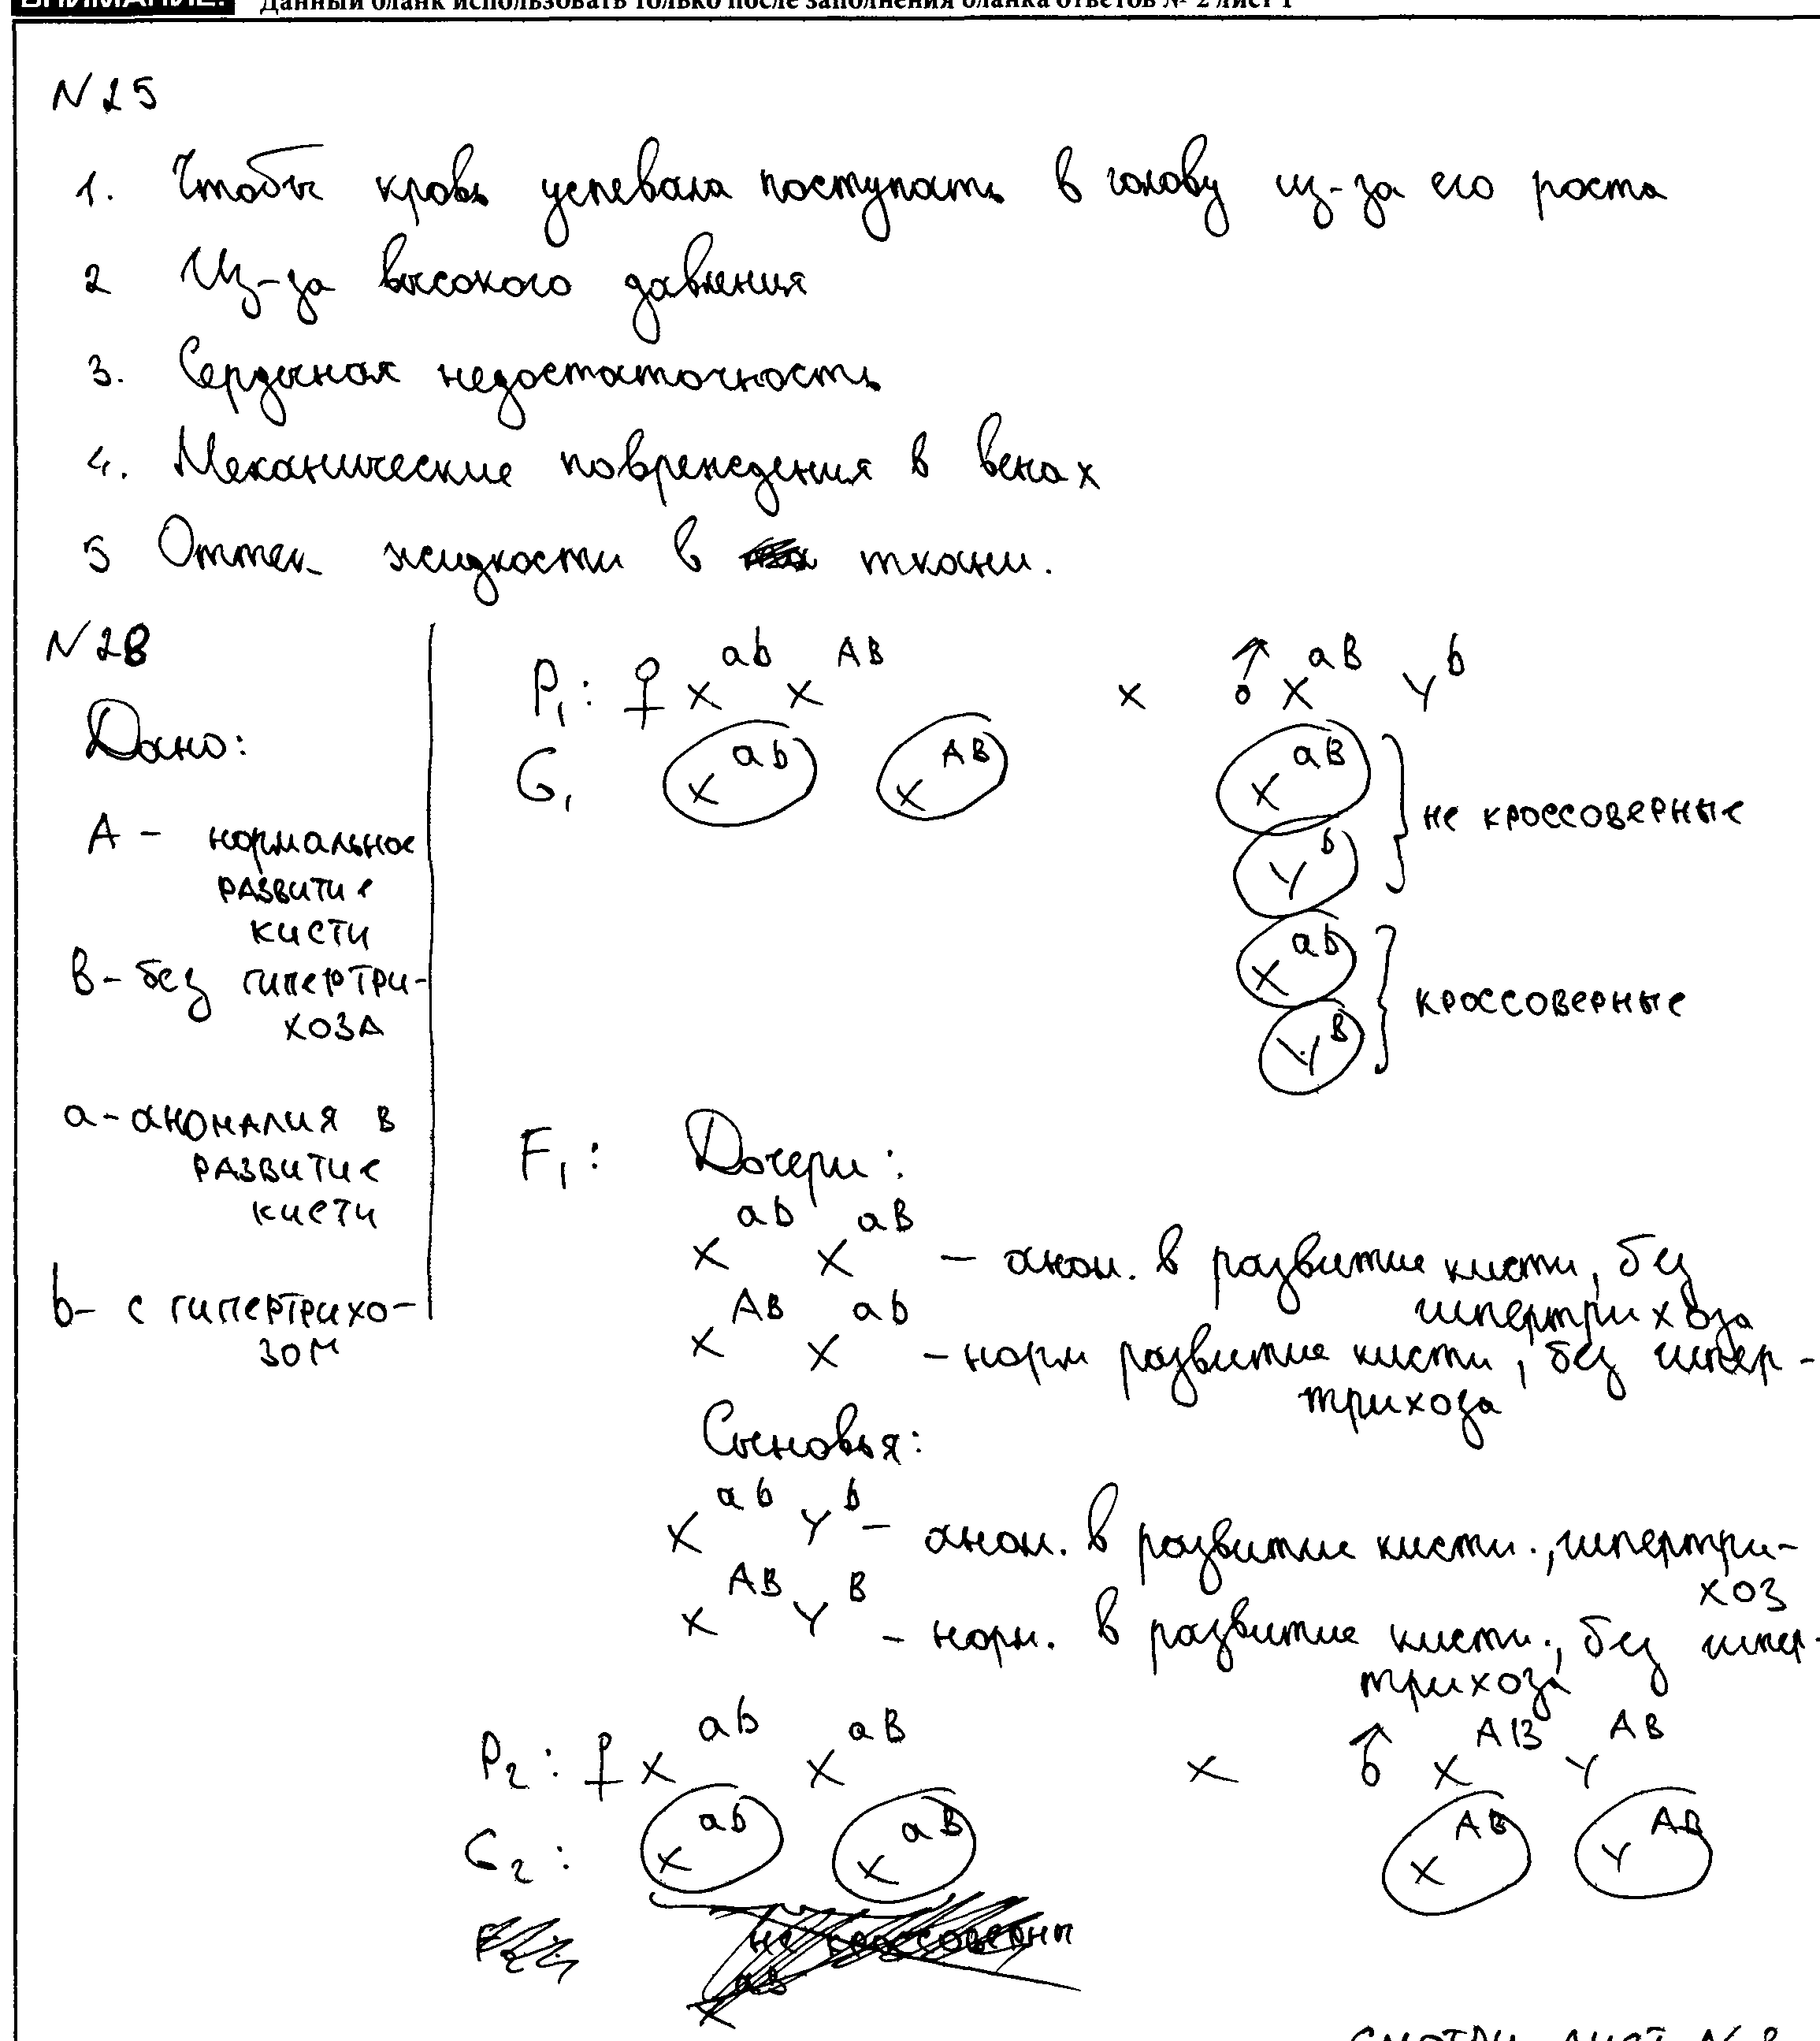 ВНИМАНИЕ! Данный бланк использовать только после заполнения бланка ответов № 2 лист 1
N25
1. Чтобы кровь успевала поступать в голову из-за его роста
2 Из-за высокого давления
3. Сердечная недостаточность
4. Механические повреждения в венах
5 Оттек жидкости в ткани.
N28
Дано:
A - нормальное
развитие
кисти
B - без гипертри-
хоза
a - аномалия в
развитие
кисти
b - с гипертрихо-
зом
P₁: ♀ X^ab X^AB x ♂ X^aB Y^b
G₁ X^ab X^AB X^aB
Y^b
не кроссоверные
X^ab
Y^B
кроссоверные
F₁: Дочери:
X^ab X^aB - аном. в развитие кисти, без
гипертрихоза
X^AB X^ab - норм развитие кисти, без гипер-
трихоза
Сыновья:
X^ab Y^b - аном. в развитие кисти., гипертри-
хоз
X^AB Y^B - норм. в развитие кисти., без гипер-
трихоза
P₂: ♀ X^ab X^aB x ♂ X^AB Y^AB
G₂: X^ab X^aB X^AB Y^AB
смотри лист N